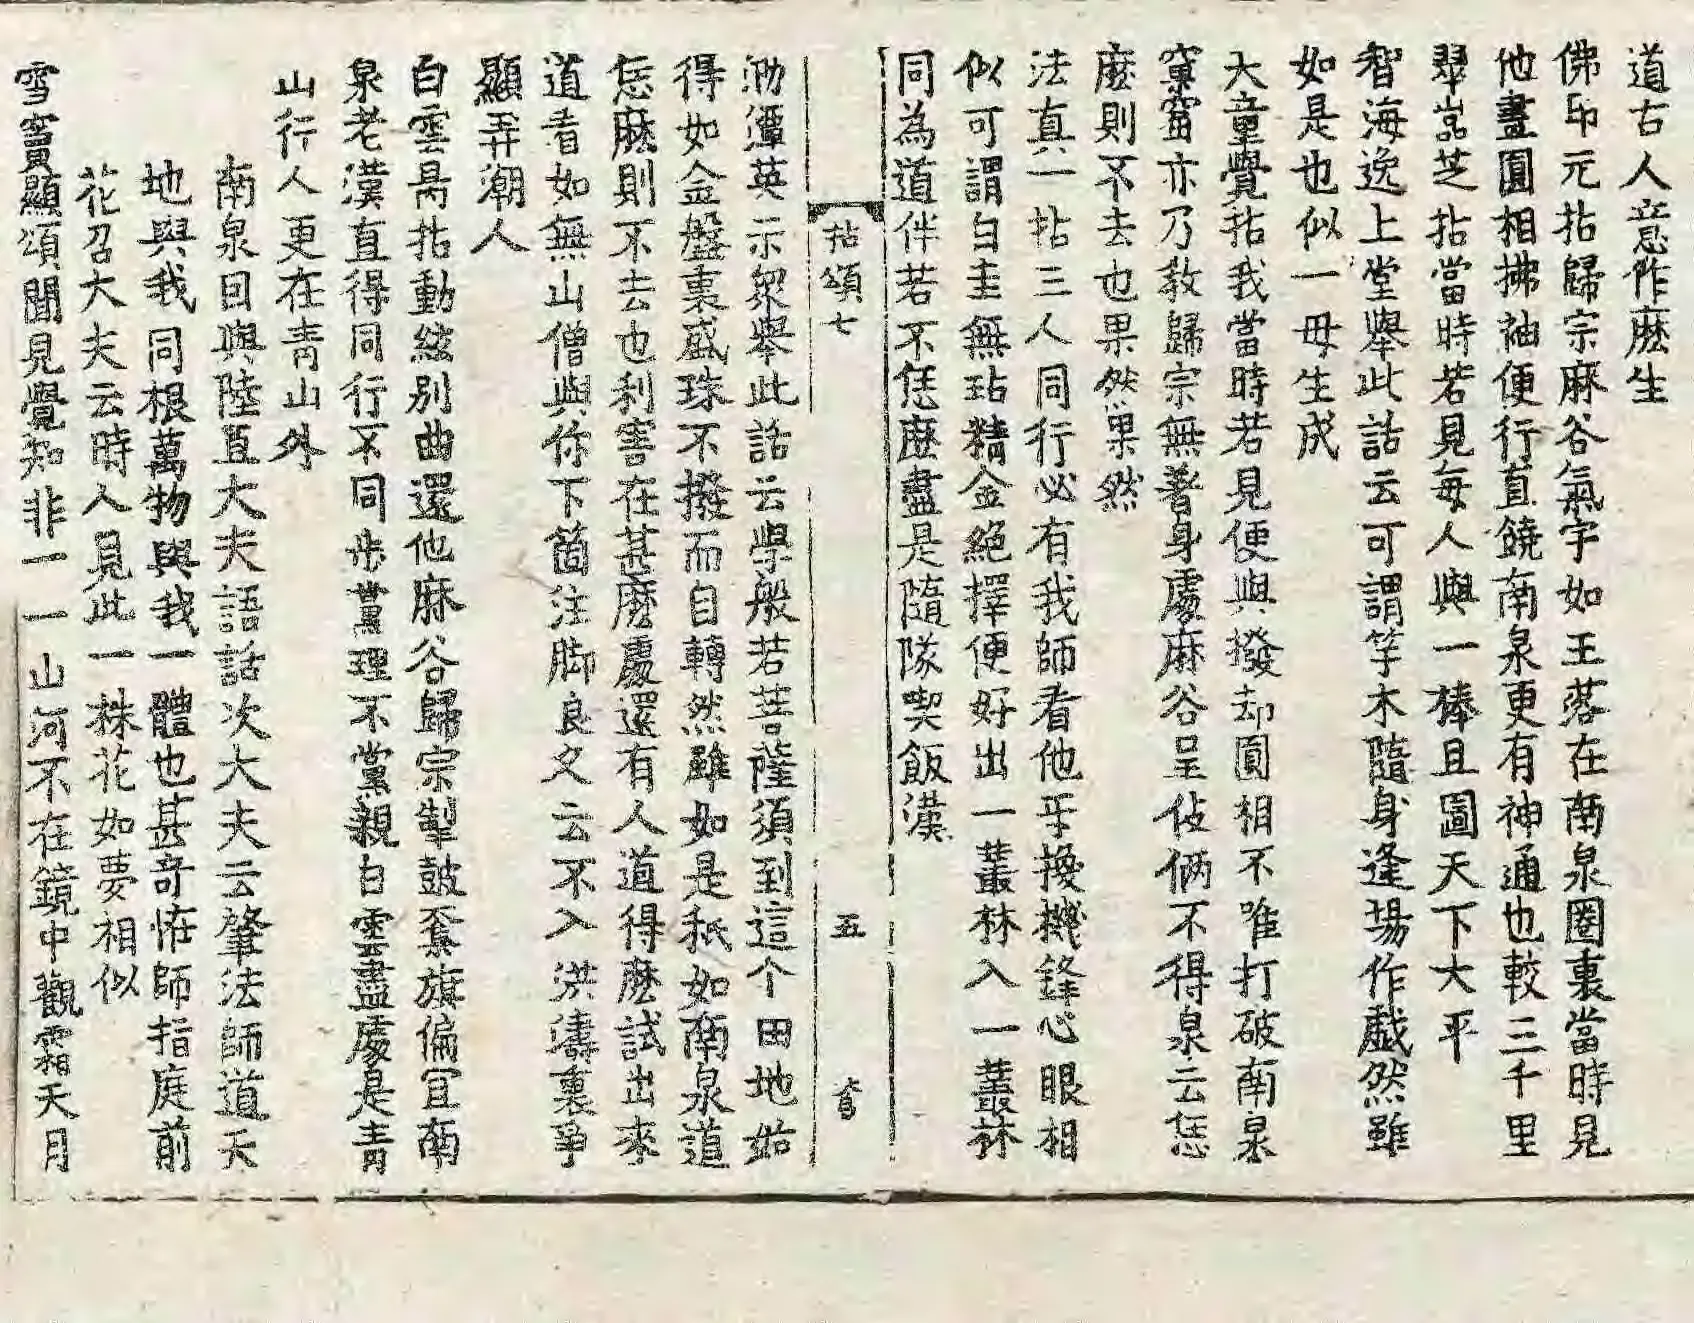 道古人意作麽生
佛印元拈歸宗麻谷氣宇如王落在南泉圈裏當時見
他畫圓相拂袖便行直饒南泉更有神通也較三千里
翠嵓芝拈當時若見每人與一棒且圖天下大平
智海逸上堂擧此話云可謂竿木隨身逢場作戲然雖
如是也似一母生成
大童覺拈我當時若見便與撥却圓相不唯打破南泉
窠窟亦乃敎歸宗無著身處麻谷呈伎倆不得泉云恁
麽則不去也果然果然
法真一拈三人同行必有我師看他互換機鋒心眼相
似可謂白圭無玷精金絕擇便好出一叢林入一叢林
同為道伴若不恁麽盡是隨隊喫飯漢
拈頌七
五
泐潭英示衆擧此話云學般若菩薩須到這个田地始
得如金盤裏盛珠不撥而自轉然雖如是秖如南泉道
恁麽則不去也利害在甚麽處還有人道得麽試出來
道看如無山僧與你下箇注脚良久云不入洪濤裏爭
顯弄潮人
白雲昺拈動絃別曲還他麻谷歸宗掣鼓奪旗偏宜南
泉老漢直得同行不同步黨理不黨親白雲盡處是青
山行人更在青山外
南泉因與陸亘大夫語話次大夫云肇法師道天
地與我同根萬物與我一體也甚奇怪師指庭前
花召大夫云時人見此一株花如夢相似
雪竇顯頌聞見覺知非一一山河不在鏡中觀霜天月